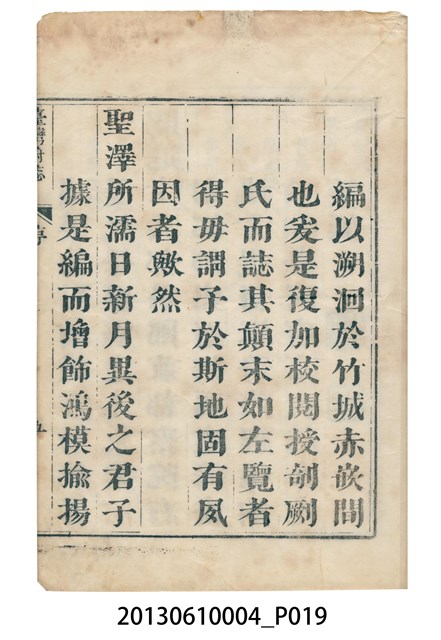 編以溯洄於竹城赤嵌間
也爰是復加校閱授剞劂
氏而誌其顛末如左覽者
得毋謂予於斯地固有夙
因者歟然
聖澤所濡日新月異後之君子
據是編而增飾鴻模揄揚
臺灣府志
序
五
20130610004_P019